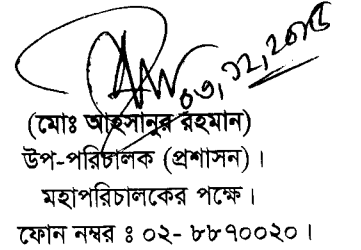 ০৩,১২,২০১৫
(মোঃ আহসানুর রহমান)
উপ-পরিচালক (প্রশাসন) ।
মহাপরিচালকের পক্ষে ।
ফোন নম্বর ঃ ০২- ৮৮৭০০২০ ।